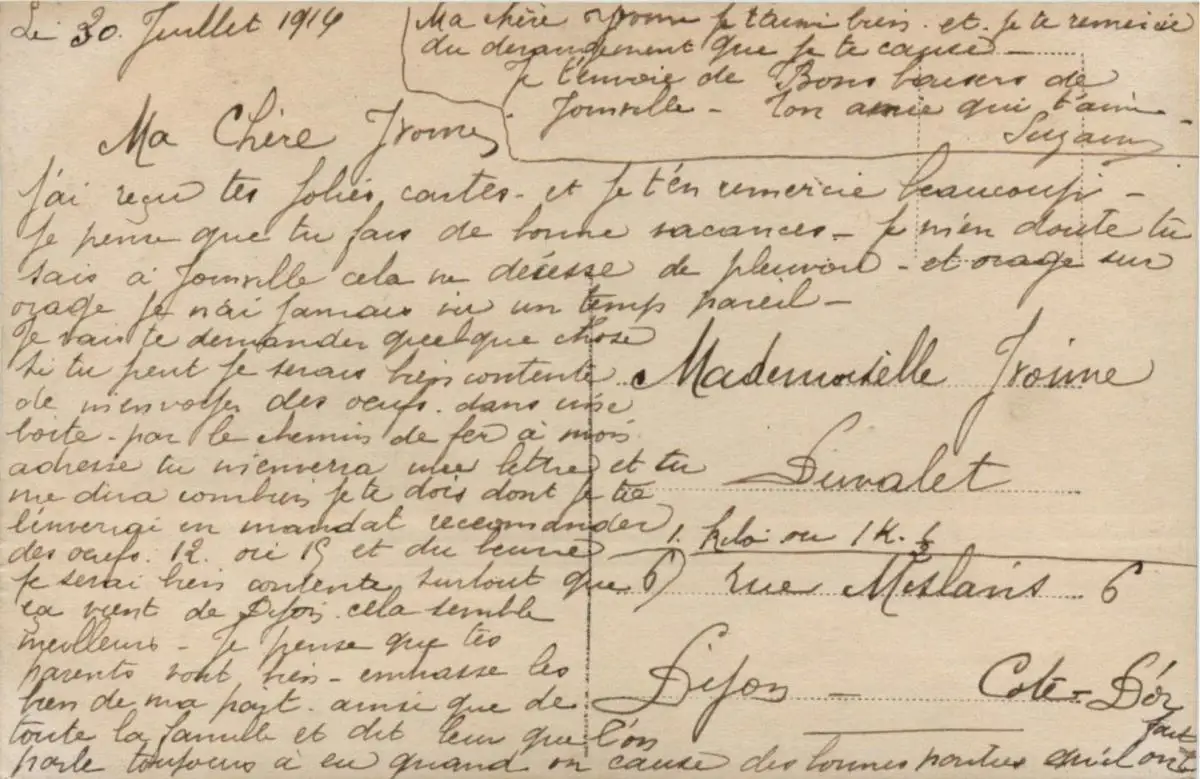 Le 30. Juillet 1914
Ma chère Yvonne je t'aimi bien. et. je te remercie
du derangement que je te cause
Je t'envoie de Bons baisers de
Joinville - ton amie qui t'aime -
Suzanne
Ma Chère Yvonne
J'ai reçu tes jolies cartes. et je t'en remercie beaucoup -
Je pense que tu fais de bonne vacances - je m'en doute tu
sais à Joinville cela ne désesse de pleuvoir - et orage sur
orage je n'ai jamais vu un temps pareil -
Je vais te demander quelque chose
si tu peut je serais bien contente
de m'envoyer des oeufs. dans une
boite - par le chemin de fer à mois
adresse tu m'enverra une lettre et tu
me dira combien je te dois dont je te
l'enverai en mandat reccomander
des oeufs. 12. ou 15 et du beurre 1. kilo ou 1 K. ½
je serai bien contente surtout que
ça vient de Dijon. cela semble
meilleurs - Je pense que tes
parents vont bien - embrasse les
bien de ma part. ainsi que de
toute la famille et dit leur que l'on
parle toujours à eu quand on cause des bonnes parties qu'il ont
fait
Mademoiselle Yvonne
Duvalet
6) rue Meslans 6
Dijon - Cote = D'or